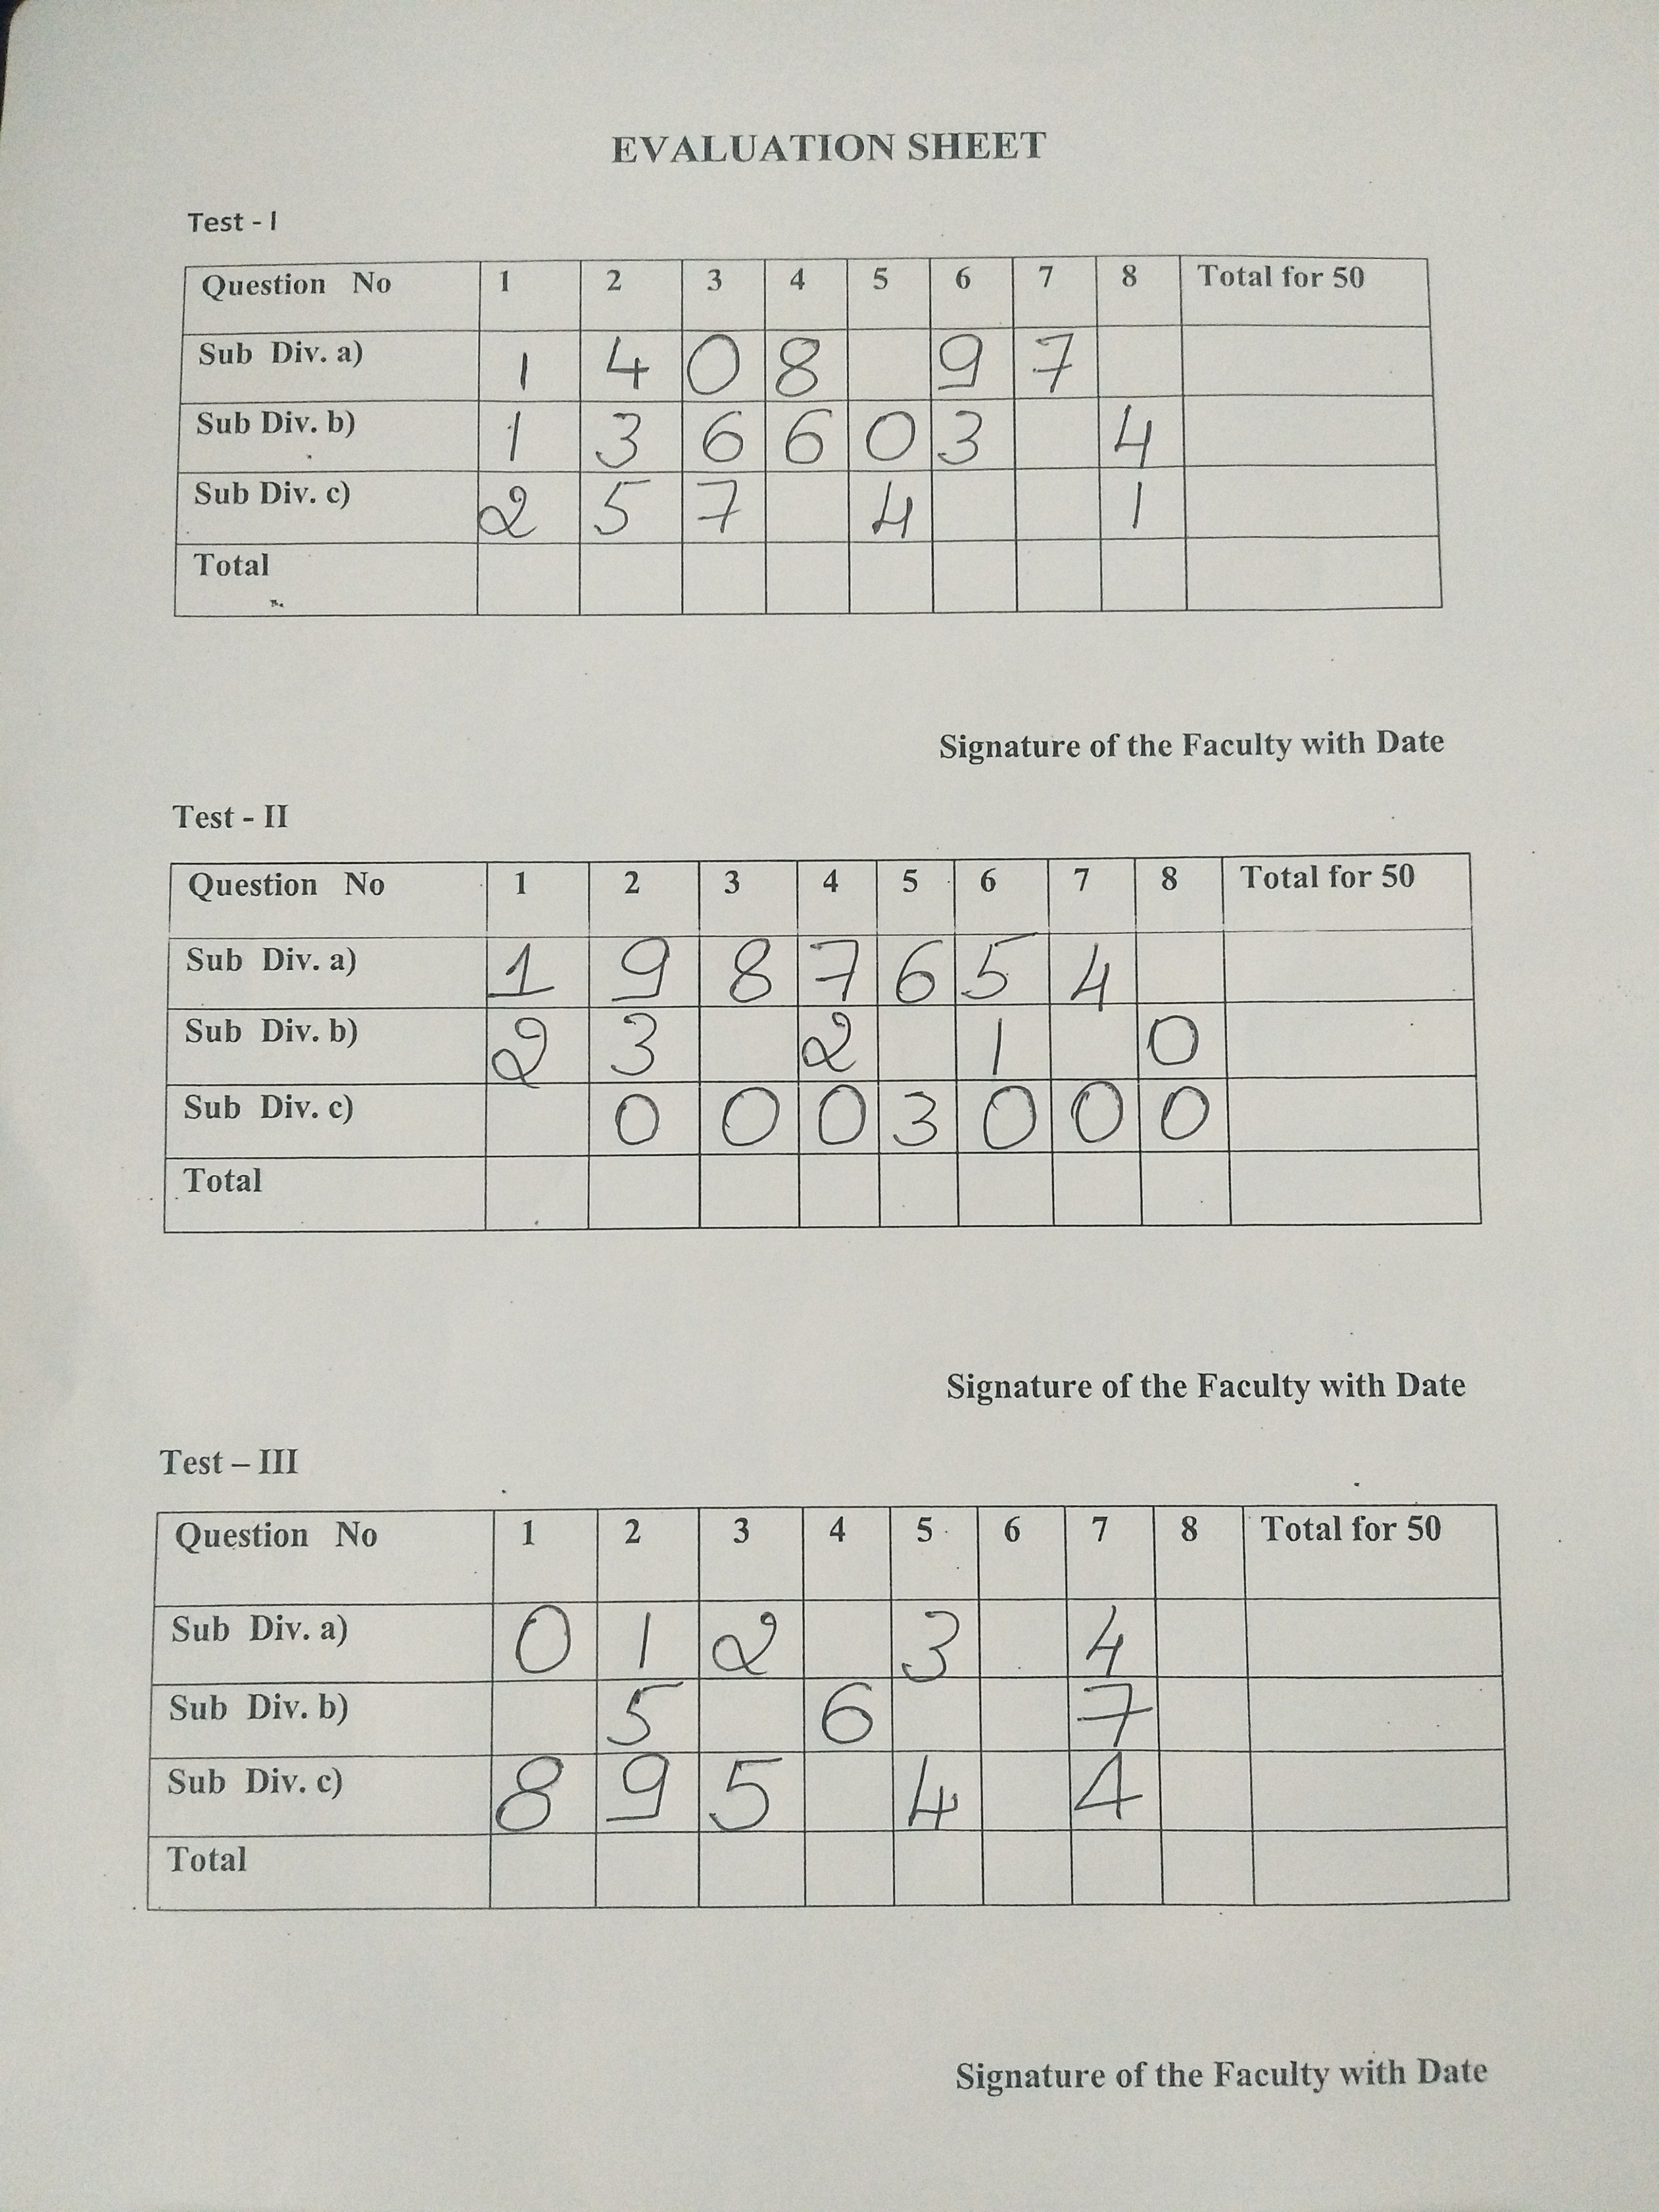 EVALUATION SHEET
Test - I
Question No 1 2 3 4 5 6 7 8 Total for 50
Sub Div. a) 1 4 0 8 9 7
Sub Div. b) 1 3 6 6 0 3 4
Sub Div. c) 2 5 7 4 1
Total
Signature of the Faculty with Date
Test - II
Question No 1 2 3 4 5 6 7 8 Total for 50
Sub Div. a) 1 9 8 7 6 5 4
Sub Div. b) 2 3 2 1 0
Sub Div. c) 0 0 0 3 0 0 0
Total
Signature of the Faculty with Date
Test – III
Question No 1 2 3 4 5 6 7 8 Total for 50
Sub Div. a) 0 1 2 3 4
Sub Div. b) 5 6 7
Sub Div. c) 8 9 5 4 4
Total
Signature of the Faculty with Date